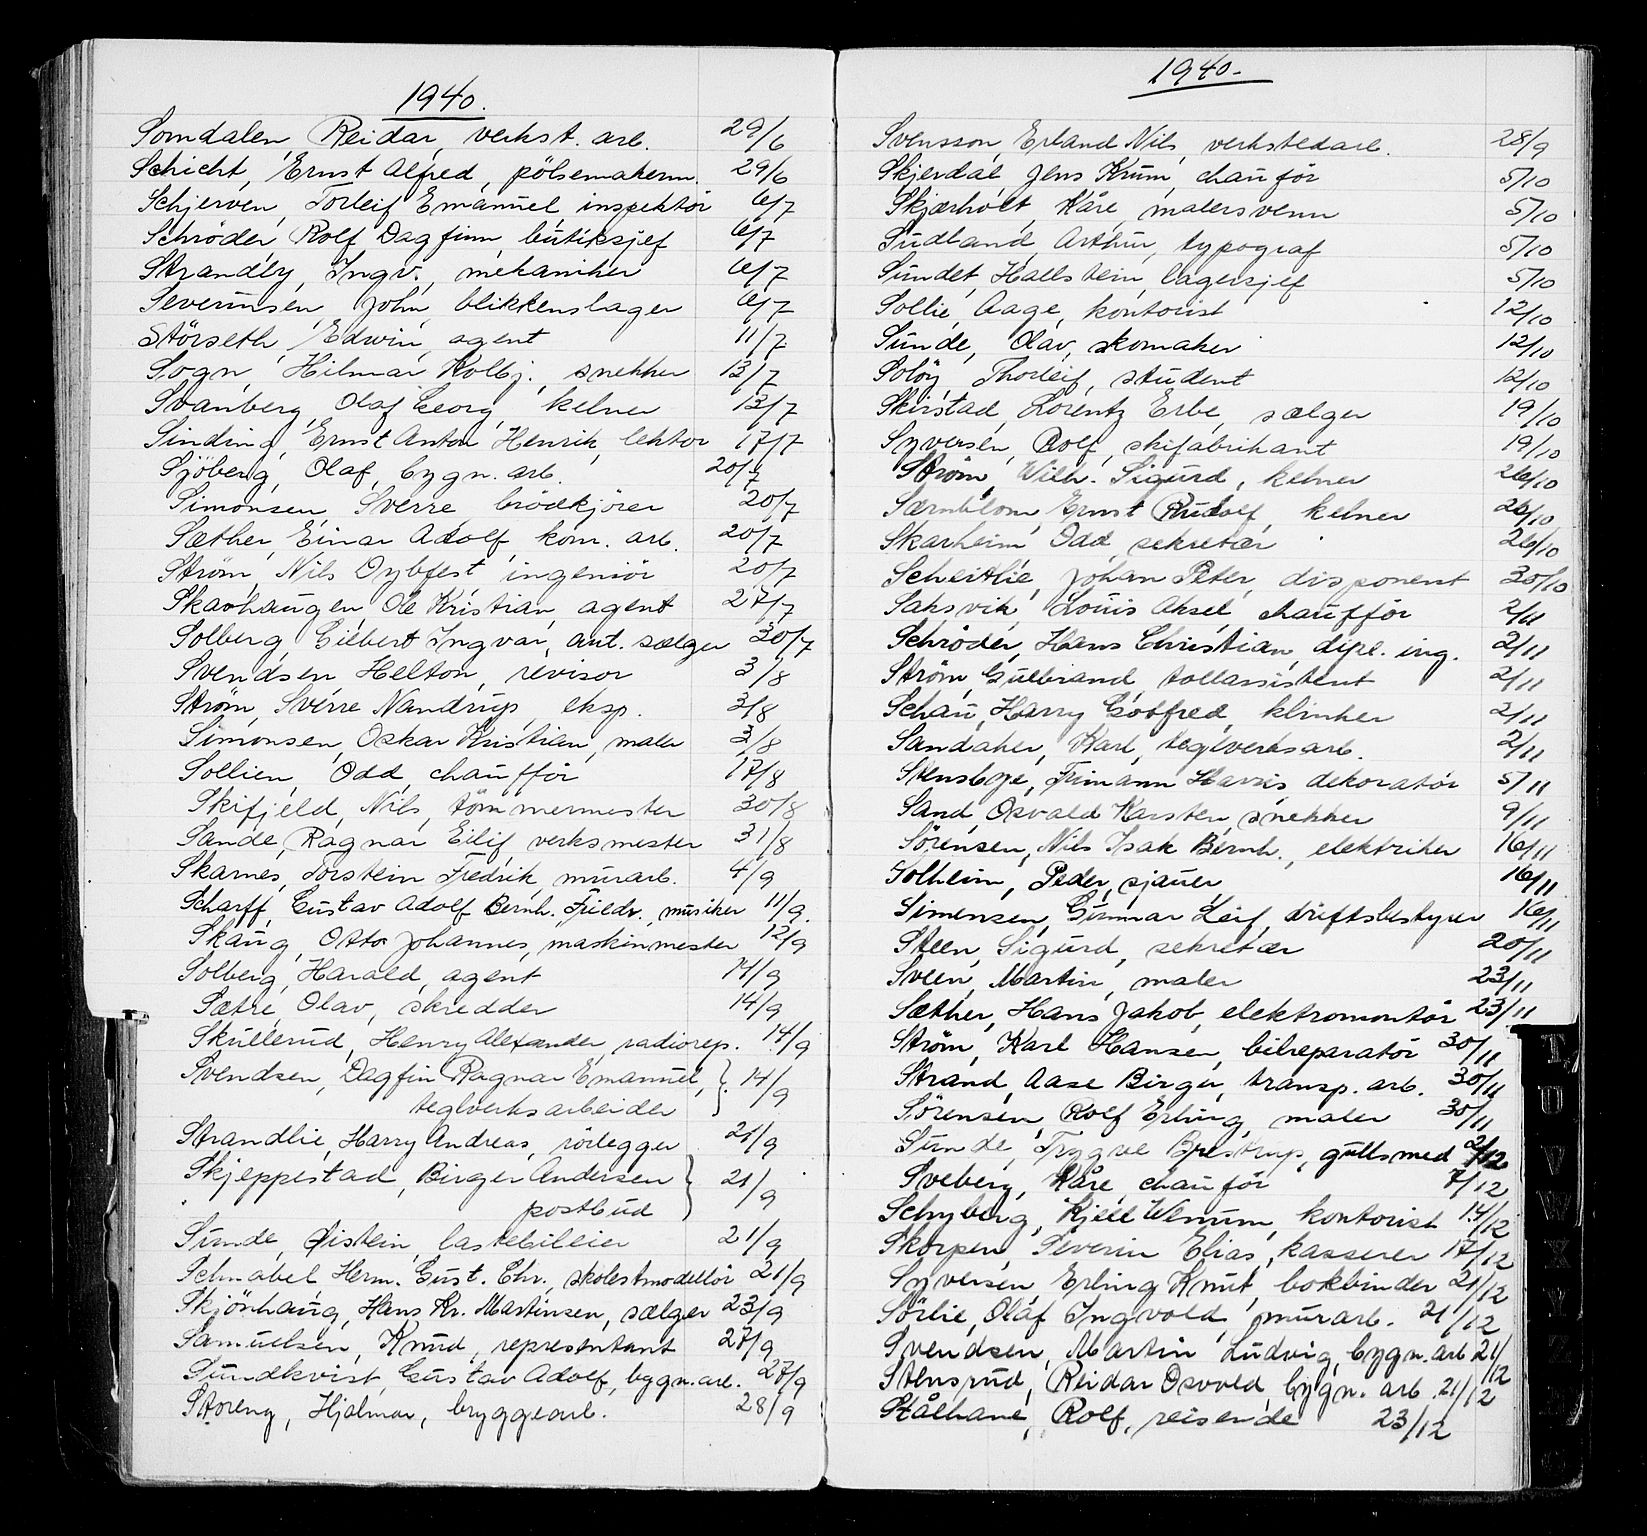 1940.
Somdalen, Reidar, verkst. arb. 29/6
Schicht, Ernst Alfred, pölsemakerm. 29/6
Schjerven, Torleif Emanuel, inspektör 6/7
Schröder, Rolf Dagfinn, butiksjef 6/7
Strandby, Ingv., mekaniker 6/7
Severinsen, John, blikkenslager 6/7
Störseth, Edwin, agent 11/7
Sogn, Hilmar Kolbj., snekker 13/7
Svanberg, Olaf Georg, kelner 13/7
Sinding, Ernst Anton Henrik, lektor 17/7
Sjöberg, Olaf, bygn. arb. 20/7
Simonsen, Sverre, brödkjörer 20/7
Sæther, Einar Adolf, kom. arb. 20/7
Ström, Nils Dybfest, ingeniör 20/7
Skavhaugen, Ole Kristian, agent 27/7
Solberg, Gilbert Ingvar, aut. sælger 30/7
Svendsen, Helton, revisor 3/8
Strøm, Sverre Nandrup, eksp. 3/8
Simonsen, Oskar Kristian, maler 3/8
Sollien, Odd, chauffør 17/8
Skifjeld, Nils, tömmermester 30/8
Sande, Ragnar Eilif, verksmester 31/8
Skarnes, Torstein Fredrik, murarb. 4/9
Scharff, Gustav Adolf Bernh. Friedr., musiker 11/9.
Skaug, Otto Johannes, maskinmester 12/9
Solberg, Harald, agent 14/9
Sætre, Olav, skredder 14/9
Skullerud, Henry Alexander, radiorep. 14/9
Svendsen, Dagfin Ragnar Emanuel, } 14/9
teglverksarbeider
Strandlie, Harry Andreas, rörlegger 21/9
Skjeppestad, Birger Andersen } 21/9
postbud
Sunde, Øistein, lastebileier 21/9
Schnabel, Herm. Gust. Chr., skolestmodellör 21/9
Skjönhaug, Hans Kr. Martinsen, sælger 23/9
Samuelsen, Knud, representant 27/9
Sundkvist, Gustav Adolf, bygn. arb. 27/9
Storeng, Hjalmar, bryggearb. 28/9
1940.
Svensson, Erland Nils, verkstedarb. 28/9
Skjerdal, Jens Krum, chauför 5/10
Skjærholt, Kåre, malersvenn 5/10
Sudland, Arthur, typograf 5/10
Sundet, Hallstein, lagersjef 5/10
Sollie, Aage, kontorist 12/10
Sunde, Olav, skomaker 12/10
Solöy, Thorleif, student 12/10
Skirstad, Lorentz Erbe, sælger 19/10
Syversen, Rolf, skifabrikant 19/10
Strøm, Wilh. Sigurd, kelner 26/10
Særnblom, Ernst Rudolf, kelner 26/10
Skarheim, Odd, sekretær 26/10
Scheitlie, Johan Peter, disponent 30/10
Saksvik, Louis Aksel, chaufför 2/11
Schröder, Hans Christian, dipl. ing. 2/11
Strøm, Gulbrand, tollassistent 2/11
Schau, Harry Gotfred, klinker 2/11
Sandaker, Karl, teglverksarb. 2/11
Stensbye, Frimann Harris, dekoratør 5/11
Sand, Osvald Karsten, snekker 9/11
Sörensen, Nils Isak Bernh., elektriker 16/11
Solheim, Peder, sjauer 16/11
Simensen, Gunnar Leif, driftsbestyrer 16/11
Steen, Sigurd, sekretær 20/11
Sveen, Martin, maler 23/11
Sæther, Hans Jakob, elektromontör 23/11
Strøm, Karl Hansen, bilreparatør 30/11
Strand, Aase Birger, transp. arb. 30/11
Sörensen, Rolf Erling, maler 30/11
Sunde, Trygve Bjrestrup, gullsmed 2/12
Sveberg, Kåre, chauför 7/12
Schyberg, Kjell Wenum, kontorist 14/12
Skorpen, Severin Elias, kasserer 17/12
Syversen, Erling Knut, bokbinder 21/12
Sörlie, Olaf Ingvold, murarb. 21/12
Svendsen, Martin Ludvig, bygn. arb 21/12
Stensrud, Reidar Osvold, bygn. arb. 21/12
Stålhane, Rolf, reisende 23/12
T
U
V
W
X
Y
Z